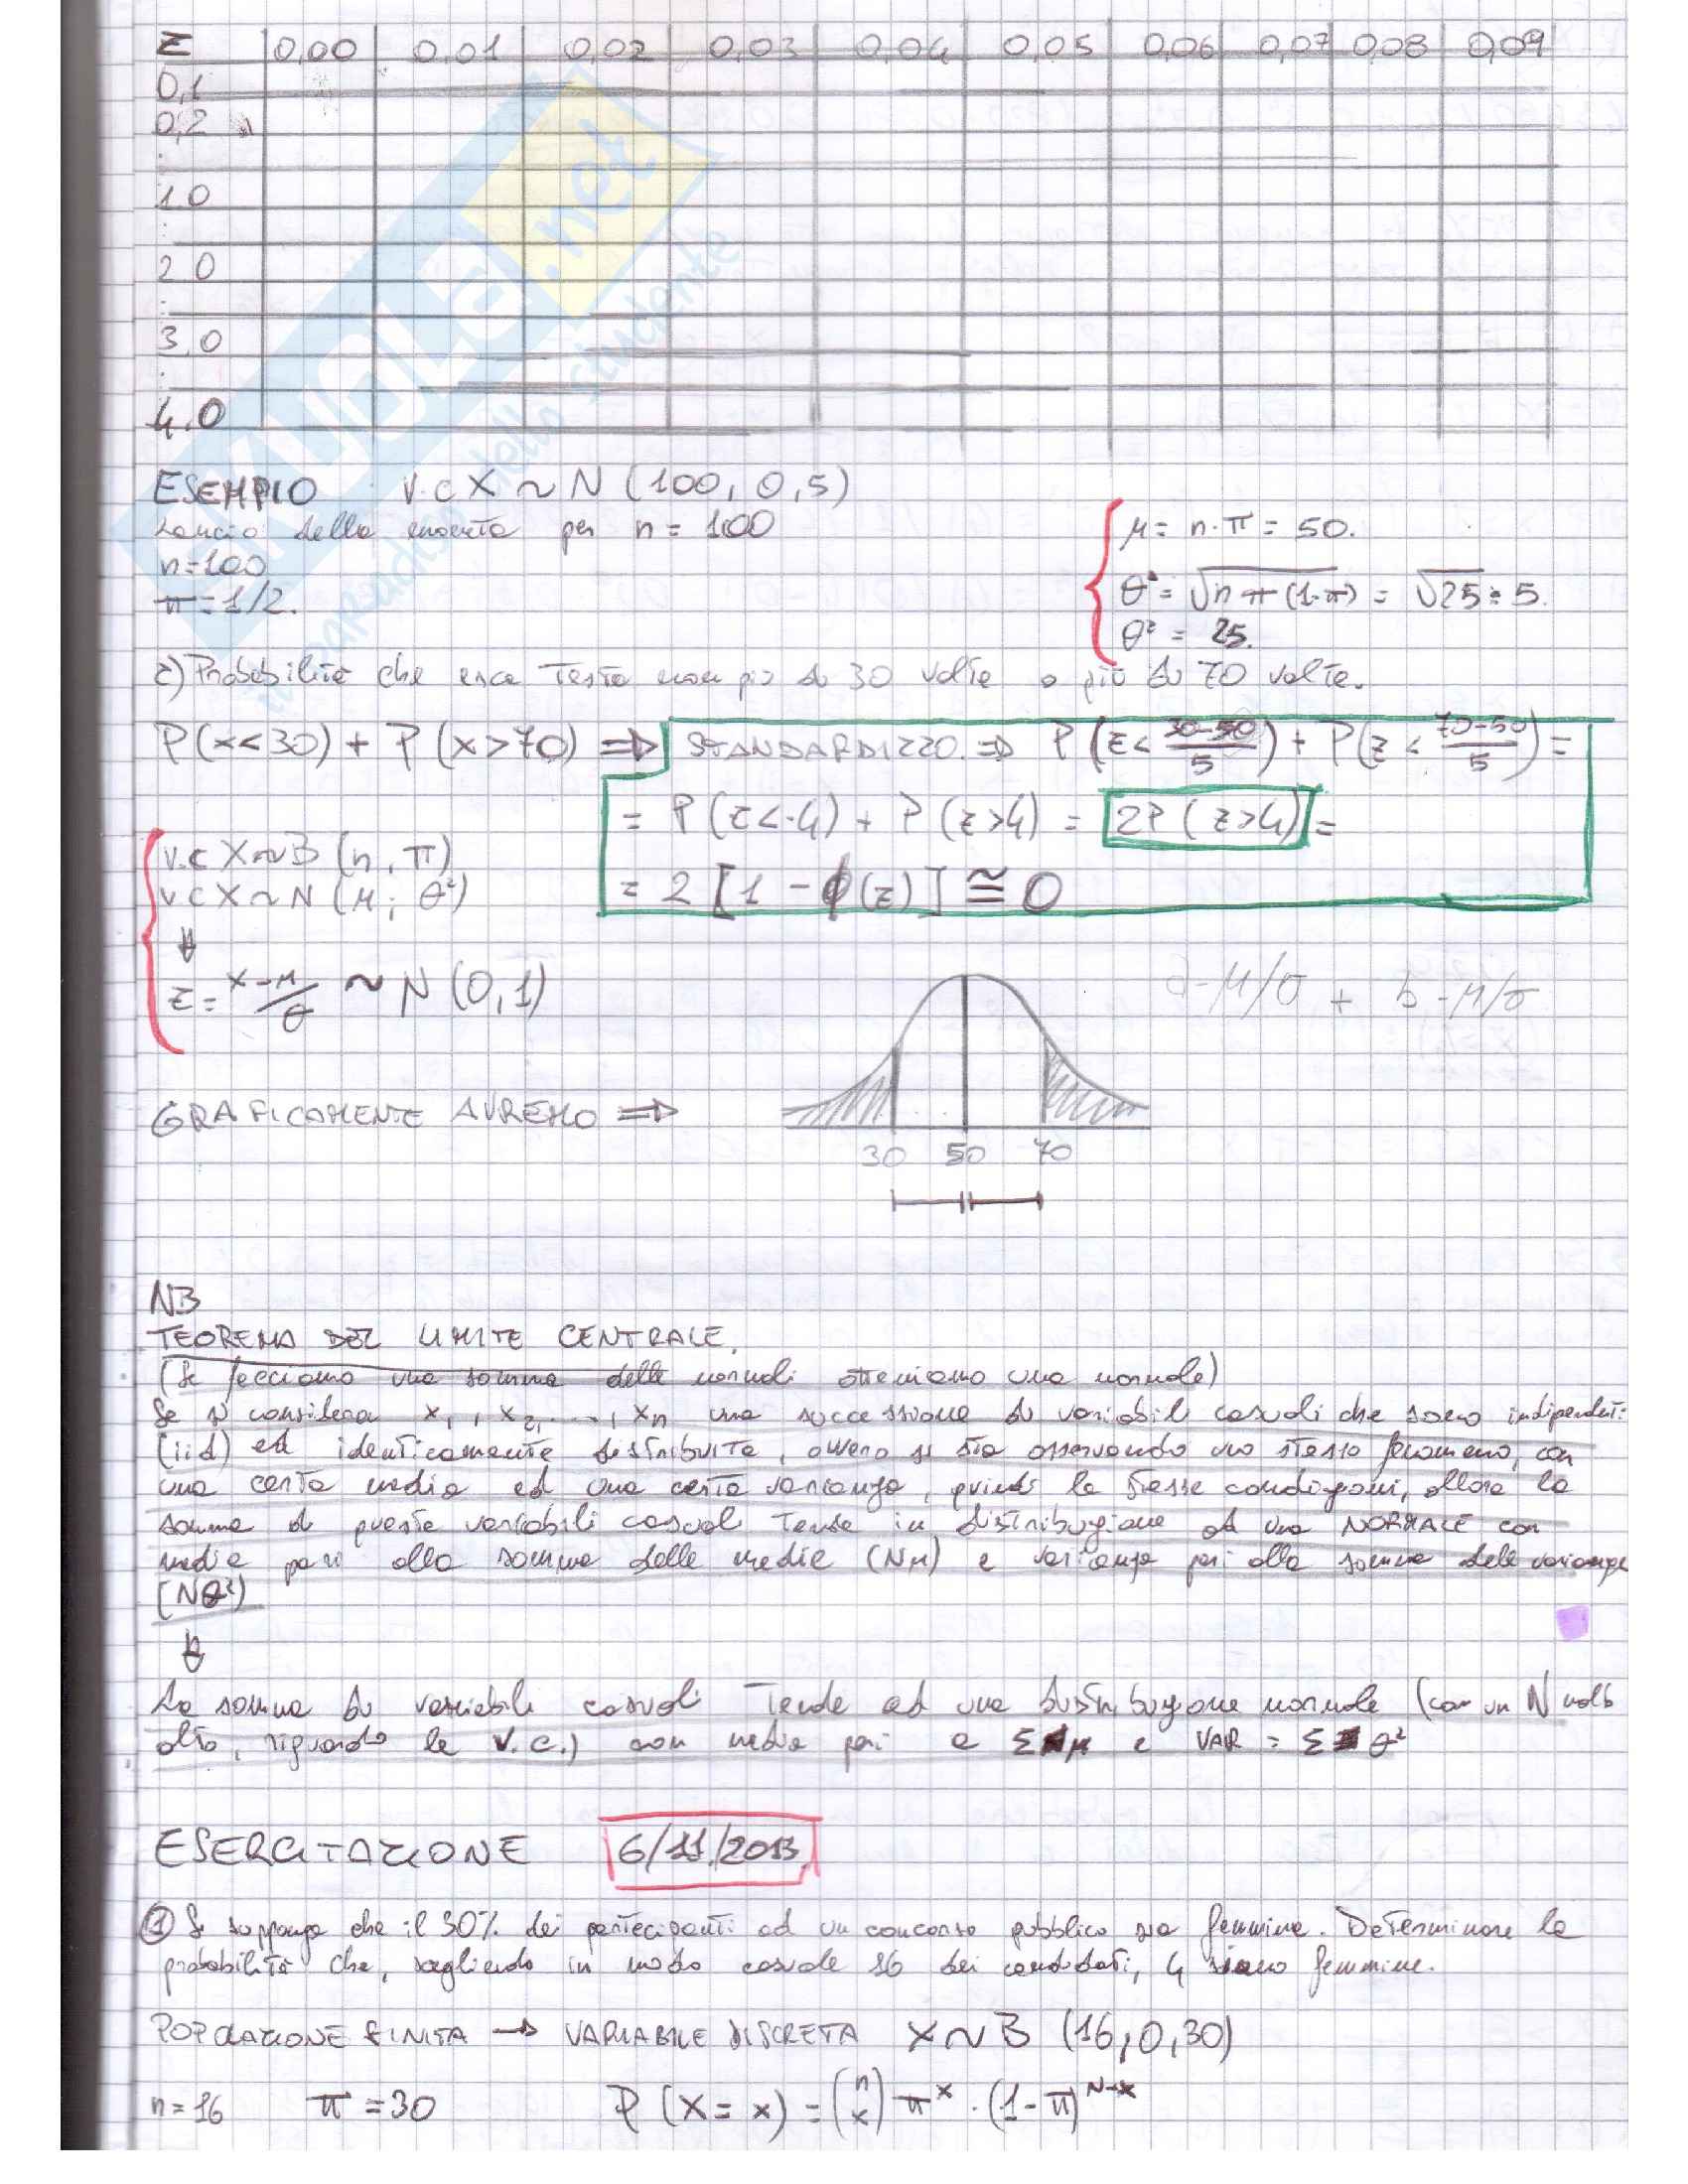 Z 0,00 0,01 0,02 0,03 0,04 0,05 0,06 0,07 0,08 0,09
0,1
0,2
1.0
2.0
3,0
4.0
SKUOLA.net
il paradiso dello studente
ESEMPIO V.C X ~ N (100, 0,5)
Lancio della moneta per n = 100
n=100
π=1/2.
μ = n·π = 50.
θ = √nπ(1-π) = √25 = 5.
θ² = 25.
Probabilità che esca Testa non più di 30 volte o più di 70 volte.
P(x<30) + P(x>70) ⇒ STANDARDIZZO. ⇒ P(z< 30-50/5) + P(z < 70-50/5) =
= P(z<-4) + P(z>4) = 2P(z>4) =
= 2 [1 - ϕ(z)] ≅ 0
V.C X~B (n, π)
V.C X~N (μ; θ²)
⇓
z = x-μ/θ ~ N (0,1)
a-μ/σ + b-μ/σ
GRAFICAMENTE AVREMO ⇒
30 50 70
NB
TEOREMA DEL LIMITE CENTRALE.
(Se facciamo una somma delle normali otteniamo una normale)
Se si considera x₁, x₂, ..., xn una successione di variabili casuali che sono indipendenti
(iid) ed identicamente distribuite, ovvero si sta osservando uno stesso fenomeno, con
una certa media ed una certa varianza, quindi le stesse condizioni, allora la
somma di queste variabili casuali tende in distribuzione ad una NORMALE con
media pari alla somma delle medie (Nμ) e varianza pari alla somma delle varianze
(Nθ²)
⇓
La somma di variabili casuali tende ad una distribuzione normale (con un N molto
alto, riguardo le V.C.) con media pari a Σμ e VAR = Σθ²
ESERCITAZIONE 6/11/2013
① Si supponga che il 30% dei partecipanti ad un concorso pubblico sia femmine. Determinare la
probabilità che, scegliendo in modo casuale 16 dei candidati, 4 siano femmine.
POPOLAZIONE FINITA → VARIABILE DISCRETA X~B (16; 0,30)
n=16 π=30 P(X=x) = (n x) π^x · (1-π)^N-x